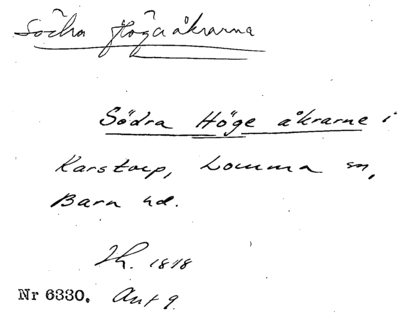 Södra Höga åkrarna
Södra Höge åkrarne i
Karstorp, Lomma sn,
Bara hd.
1818
Nr 6330. Ant 9.